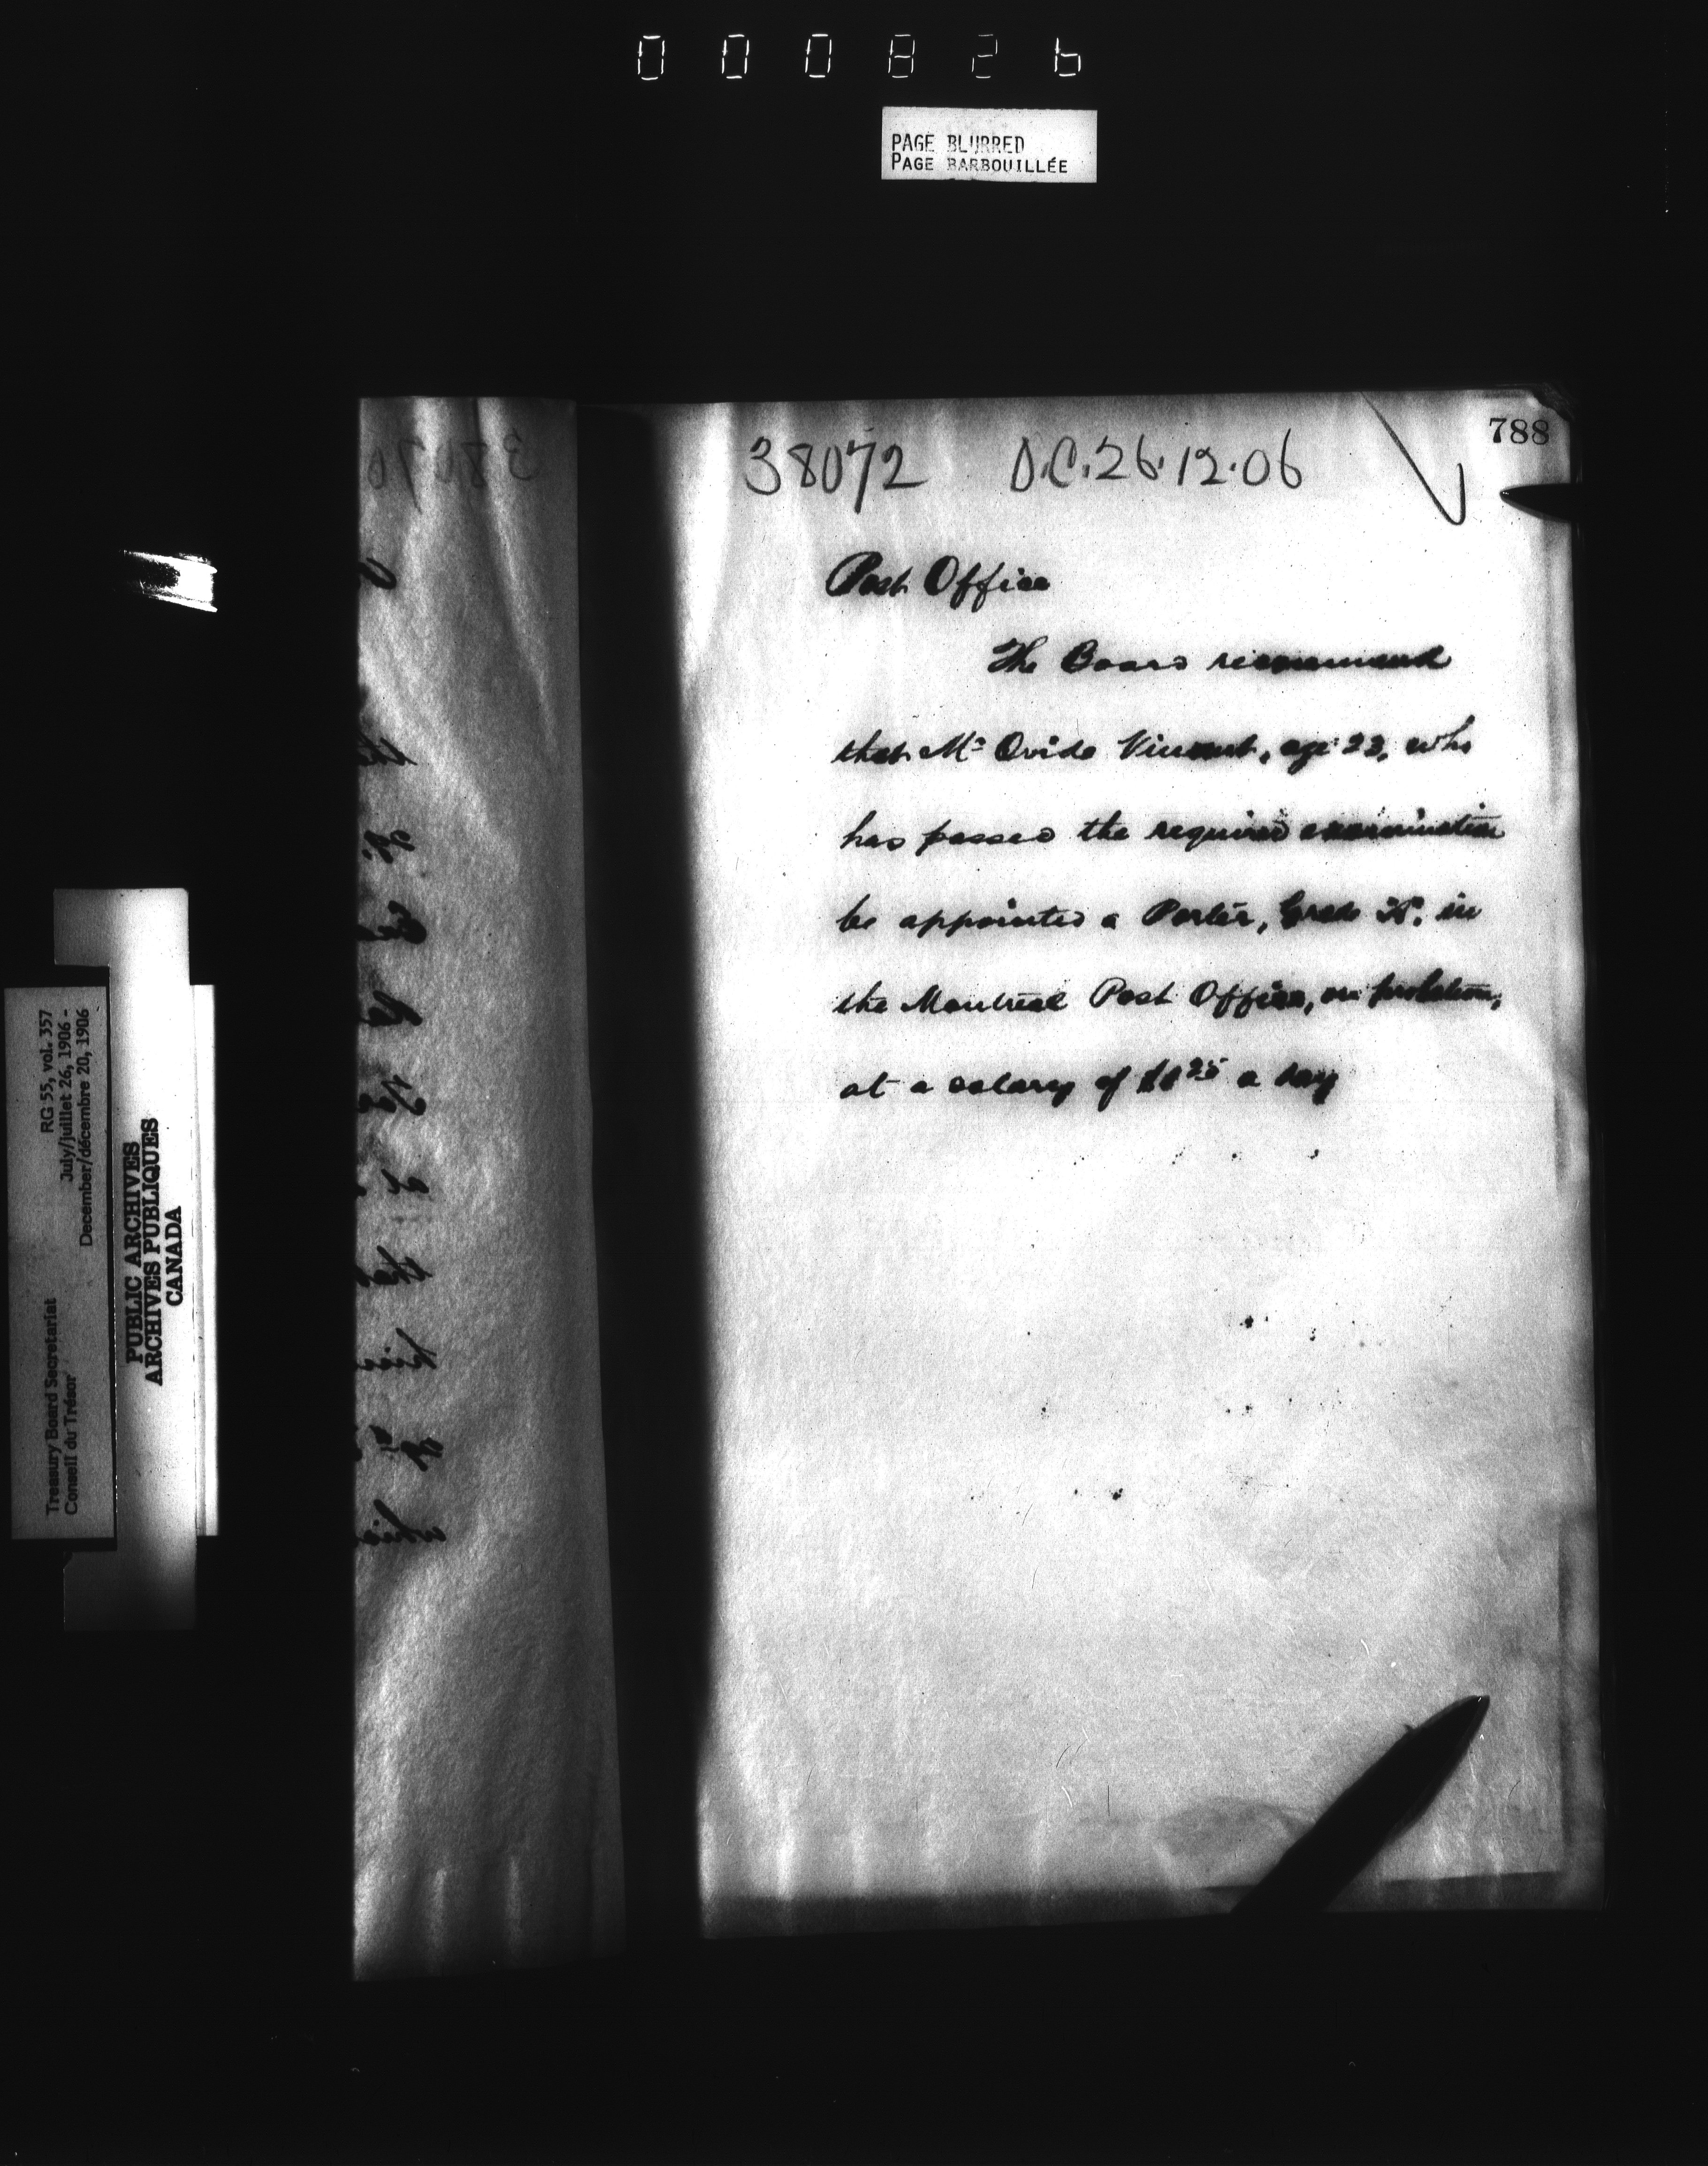 000826
PAGE BLURRED
PAGE BARBOUILLÉE
788
38072 O.C. 26.12.06
Post Office
The Board recommend
that Mr Ovide Vincent, age 22, who
has passed the required examination
be appointed a Porter, Grade "A", in
the Montreal Post Office, on probation,
at a salary of $1.25 a day
RG 55, vol. 357
July/juillet 26, 1906 -
December/décembre 20, 1906
Treasury Board Secretariat
Conseil du Trésor
PUBLIC ARCHIVES
ARCHIVES PUBLIQUES
CANADA